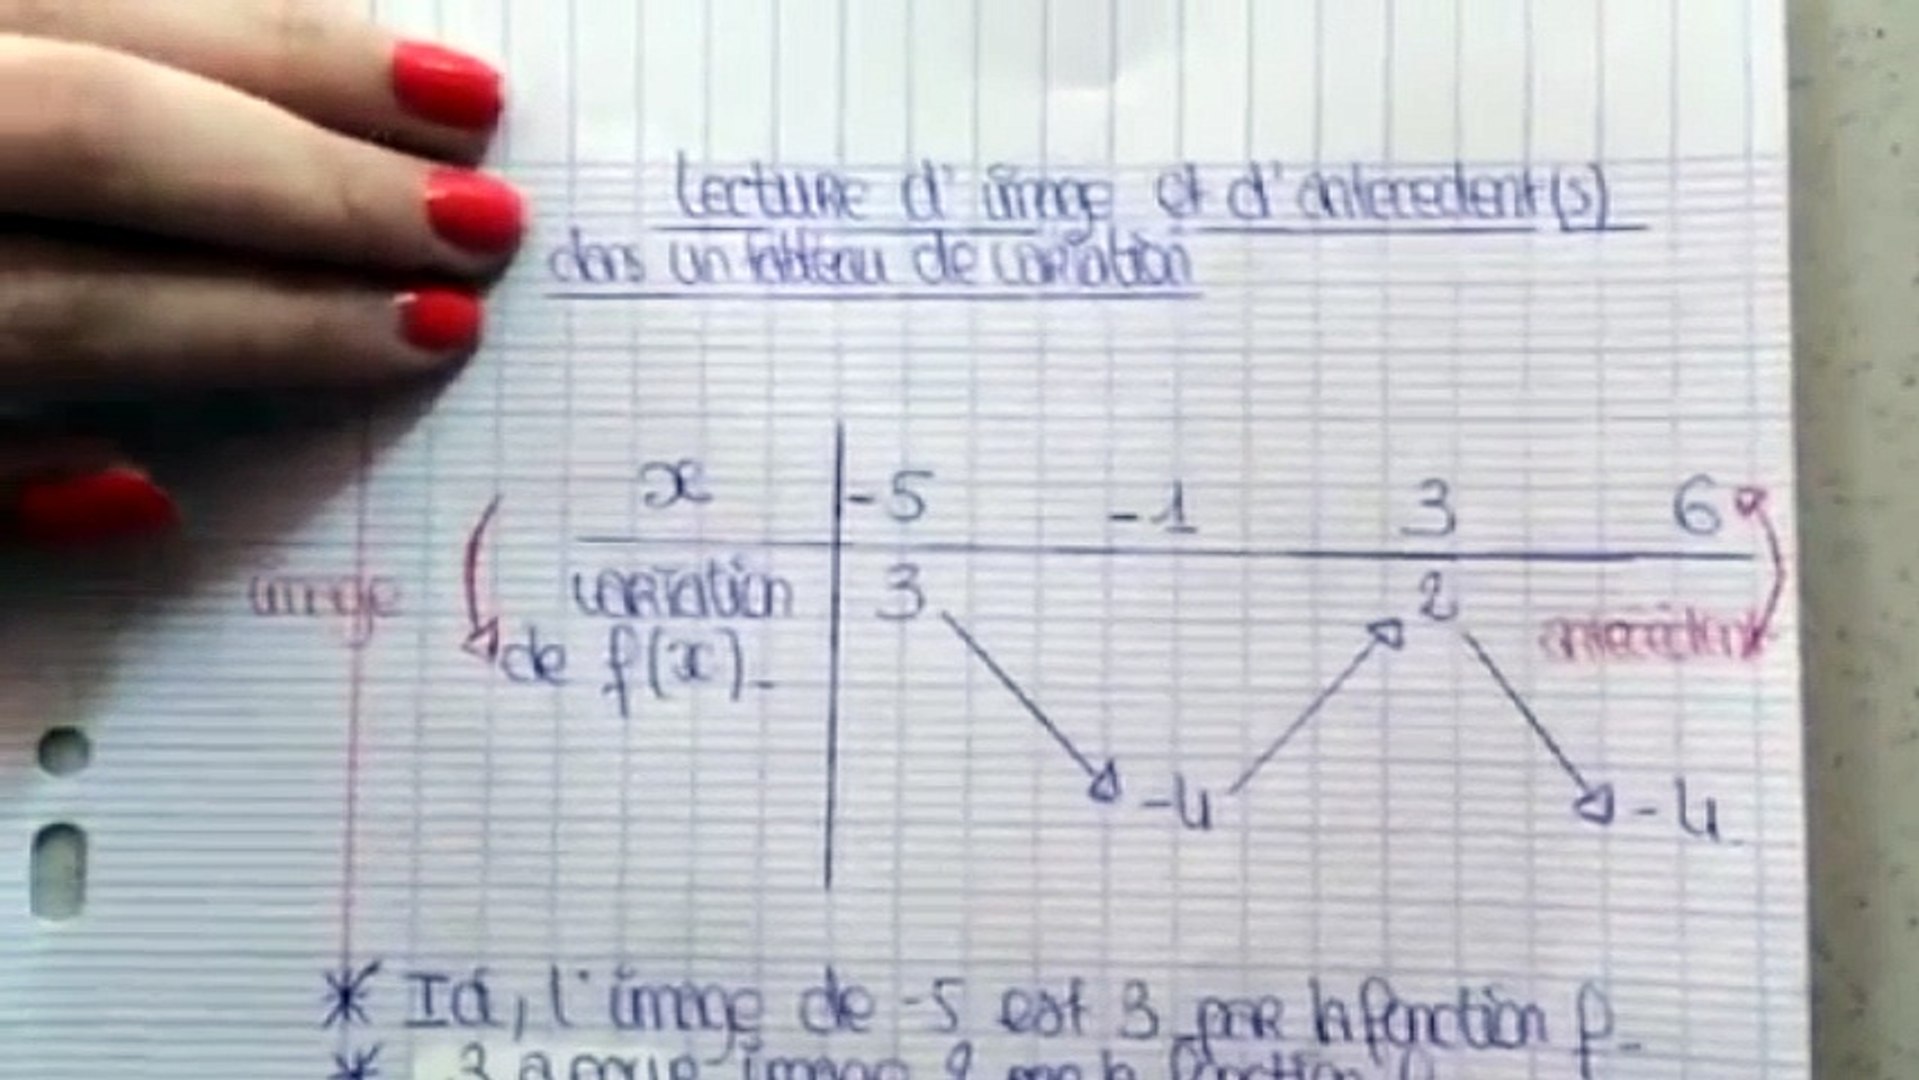 Lecture d'image et d'antecedent(s)
dans un tableau de variation
x -5 -1 3 6
image variation 3 2 antécédent
de f(x)_
-4 -4
* Ici, l'image de -5 est 3 par la fonction f_
* 3 a pour image 2 par la fonction f